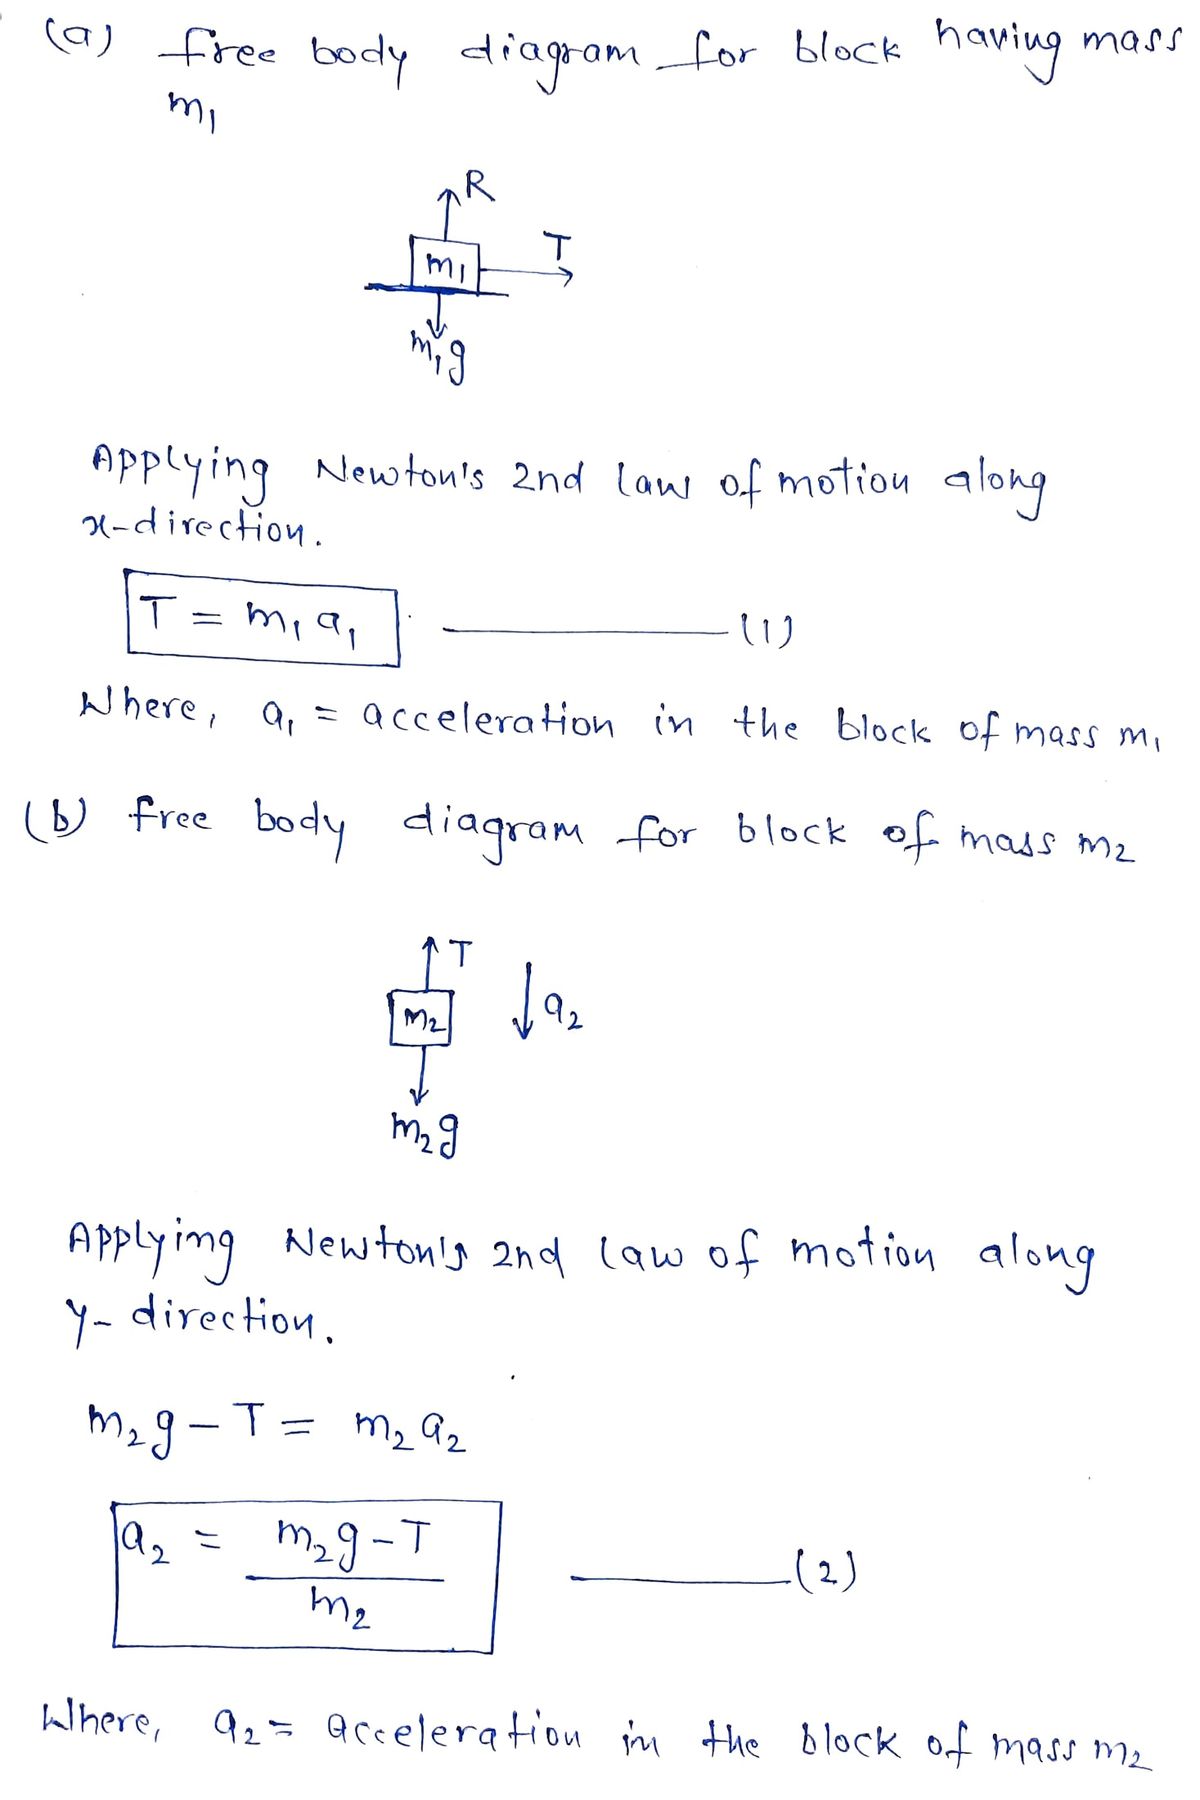 (a) free body diagram for block having mass
m₁
R
T
m₁
m₁g
Applying Newton's 2nd law of motion along
x-direction.
T = m₁a₁ (1)
Where, a₁ = acceleration in the block of mass m₁
(b) free body diagram for block of mass m₂
T
m₂
a₂
m₂g
Applying Newton's 2nd law of motion along
y-direction.
m₂g - T = m₂a₂
a₂ = m₂g - T
m₂
(2)
Where, a₂ = acceleration in the block of mass m₂